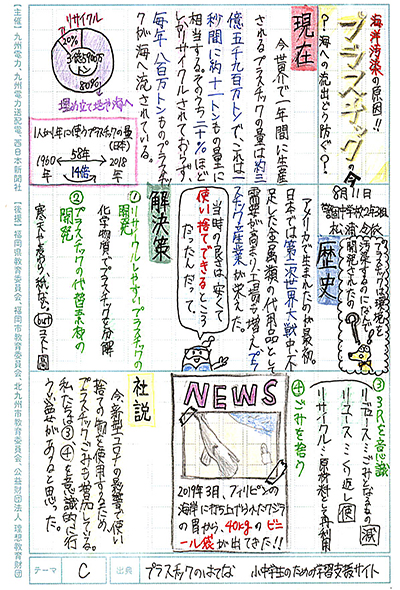 海洋汚染の原因!!
プラスチックの今
?・海への流出どう防ぐ?・
現在
今世界で一年間に生産
されるプラスチックの量は約三
億五千九百万トンでこれは一
秒間に約十一トンもの量に
相当する。そのうち二十%ほど
しかリサイクルされておらず、
毎年八百万トンものプラスチッ
クが海へ流されている。
リサイクル
20%
3億5900万
トン
80%
埋め立て地や海へ
1人が1年に使うプラスチックの量
(日本)
1960年
58年
14倍
2018年
8月11日
プラスチックは環境を
汚染するのになんで
開発されたの
歴史
アメリカで生まれたのが最初。
日本では第二次世界大戦中に不
足した金属類の代用品として
需要が高まり工場も増え、プラ
スチック産業が栄えた。
当時の良さは安くて
使い捨てできるところ
だったんだって。
解決策
①リサイクルしやすいプラスチックの
開発
化学物質でプラスチックを分解
②プラスチックの代替素材の
開発
寒天、木材、紙など but コスト高
③3Rを意識
リデュース…ごみとなるもの減
リユース…くり返し使
リサイクル…原材料として再利用
④ごみを拾う
NEWS
2019年3月、フィリピンの
海岸に打ち上げられたクジラ
の胃から、40kgのビニ
ール袋が出てきた!!
社説
今、新型コロナの影響で使い
捨ての物を使用するため
プラスチックごみも増加している。
私たちは③④を意識的に行
う必要があると思った。
テーマ
C
出典
プラスチックのはてな 小中学生のための学習支援サイト
【主催】九州電力、九州電力送配電、西日本新聞社
【後援】福岡県教育委員会、福岡市教育委員会、北九州市教育委員会、公益財団法人 理想教育財団